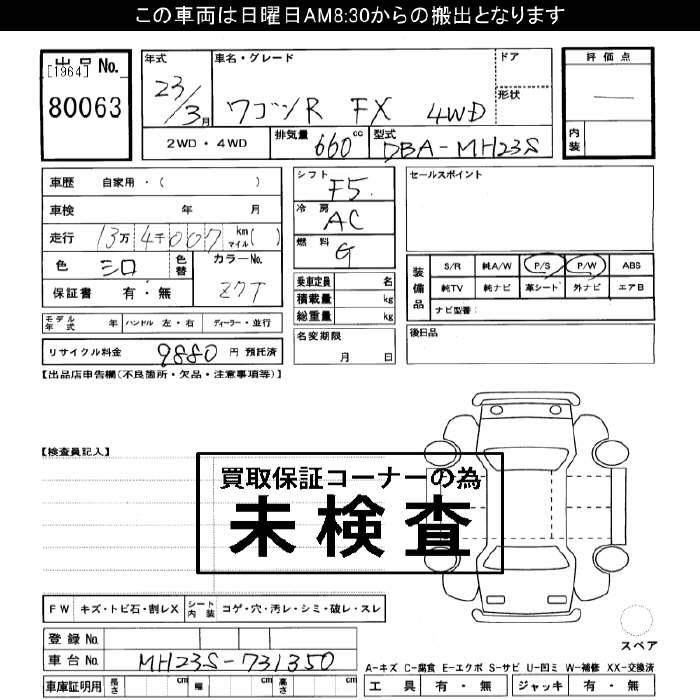 この車両は日曜日AM8:30からの搬出となります
出品 No.
[1964]
80063
年式
23/3月
車名・グレード
ワゴンR FX 4WD
ドア
形状
2WD・4WD
排気量 660cc
型式 DBA-MH23S
評価点
―
内装
車歴 自家用・( )
車検 年 月
走行 13万4千007km マイル( )
色 シロ
色替
カラーNo. Z7T
保証書 有・無
シフト F5
冷房 AC
燃料 G
乗車定員 名
積載量 kg
総重量 kg
名変期限 月 日
セールスポイント
装備品
S/R 純A/W P/S P/W ABS
純TV 純ナビ 革シート 外ナビ エアB
ナビ型番:
後日品
モデル年式 年 ハンドル 左・右 ディーラー・並行
リサイクル料金 9880 円 預託済
【出品店申告欄(不良箇所・欠品・注意事項等)】
【検査員記入】
買取保証コーナーの為
未検査
FW キズ・トビ石・割レX
シート内装 コゲ・穴・汚レ・シミ・破レ・スレ
登録No.
車台No. MH23S-731350
車庫証明用 長さ cm 幅 cm 高さ cm
スペア
A-キズ C-腐食 E-エクボ S-サビ U-凹ミ W-補修 XX-交換済
工具 有・無 ジャッキ 有・無